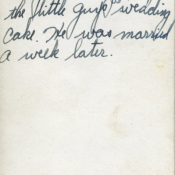 the "little guy's" wedding
cake. He was married
a week later.